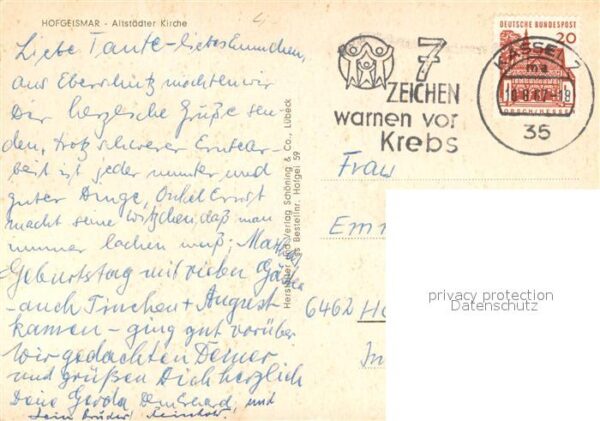 HOFGEISMAR - Altstädter Kirche
Liebe Tante-
aus Eberschütz möchten wir
Dir herzliche Grüße sen-
den, trotz schwerer Erntear-
beit ist jeder munter und
guter Dinge, Onkel Ernst
macht seine Witzchen, daß man
immer lachen muß,
Geburtstag mit vielen Gästen
- auch Tinchen + August
kamen - ging gut vorüber
Wir gedachten Deiner
und grüßen Dich herzlich
Deine Gerda und
Dein Bruder
Hersteller und Verlag Schöning & Co., Lübeck
Bestellnr. Hofgei 59
7
ZEICHEN
warnen vor
Krebs
DEUTSCHE BUNDESPOST
20
KASSEL 7
ma
35
Frau
Em
6462
privacy protection
Datenschutz